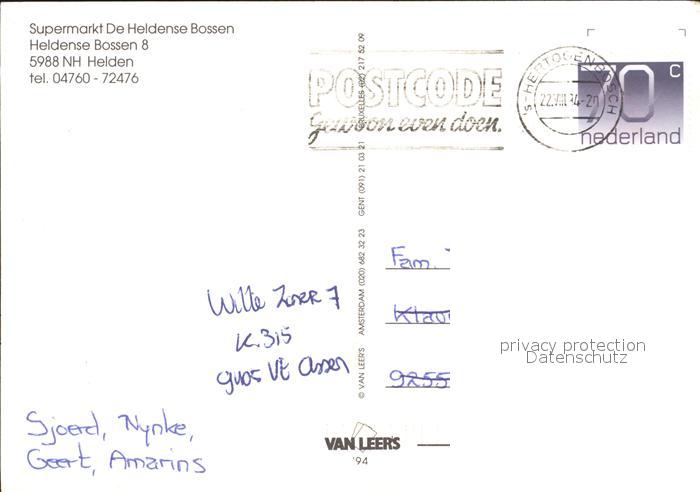 Supermarkt De Heldense Bossen
Heldense Bossen 8
5988 NH Helden
tel. 04760 - 72476
POSTCODE
gewoon even doen.
's-HERTOGENBOSCH
22.VIII.94-20
70 c
nederland
© VAN LEER'S AMSTERDAM (020) 682 32 23 GENT (091) 21 03 21 BRUXELLES (02) 217 52 09
Fam.
Klau
9255
Witte Zorr 7
K.315
9405 VE Assen
privacy protection
Datenschutz
Sjoerd, Nynke,
Geert, Amarins
VAN LEER'S
'94